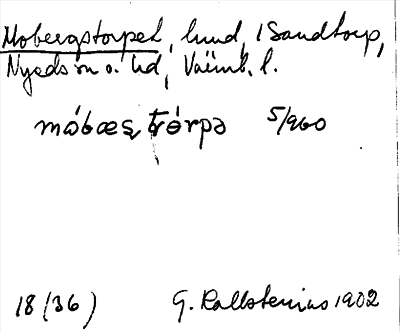 Mobergstorpet, lund, i Sandtorp,
Nyeds sn o. hd, Värml. l.
móbæs, tórpə 5/960
18 (36) G. Kallstenius 1902